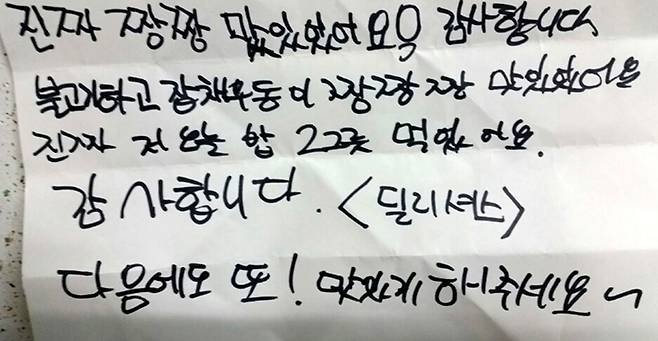 진짜 짱짱 맛있었어요옹 감사합니다
불고기하고 잡채우동이 짱짱짱 맛있었어용
진짜 저 오늘 밥 2그릇 먹었어요.
감사합니다. <딜리셔스>
다음에도 또! 맛있게 해주세요~